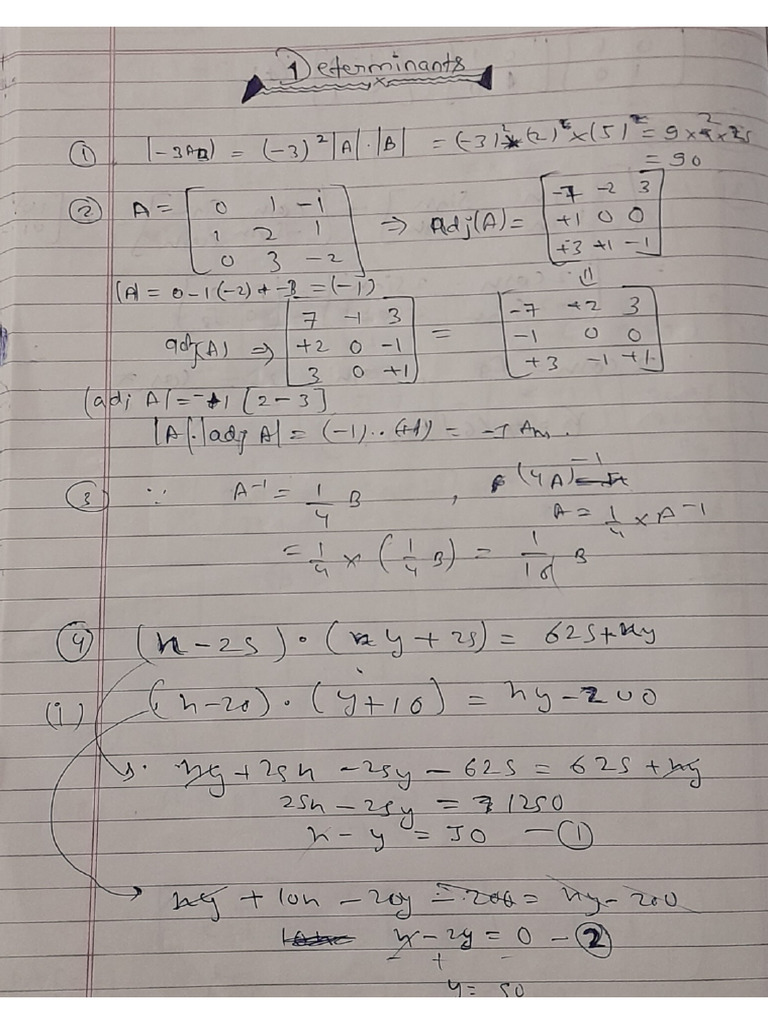 Determinants
① |-3AB| = (-3)² |A|·|B| = (-3)² × (2) × (5) = 9 × 2 × 5
= 90
② A = [ 0 1 -1 ; 1 2 1 ; 0 3 -2 ] ⇒ Adj(A) = [ -7 -2 3 ; +1 0 0 ; +3 +1 -1 ]
|A| = 0 - 1(-2) + -3 = (-1)
adj(A) ⇒ [ 7 -1 3 ; +2 0 -1 ; 3 0 +1 ] = [ -7 +2 3 ; -1 0 0 ; +3 -1 +1 ]
|adj A| = -1 [2-3]
|A|·|adj A| = (-1)··(+1) = -1 Ans.
③ ∵ A⁻¹ = 1/4 B , (4A)⁻¹
A = 1/4 × A⁻¹
= 1/4 × (1/4 B) = 1/16 B
④ (x-25)·(y+25) = 625+xy
(i) (x-20)·(y+10) = xy-200
xy + 25x - 25y - 625 = 625 + xy
25x - 25y = 1250
x - y = 50 — ①
xy + 10x - 20y - 200 = xy - 200
x - 2y = 0 — ②
- + -
y = 50